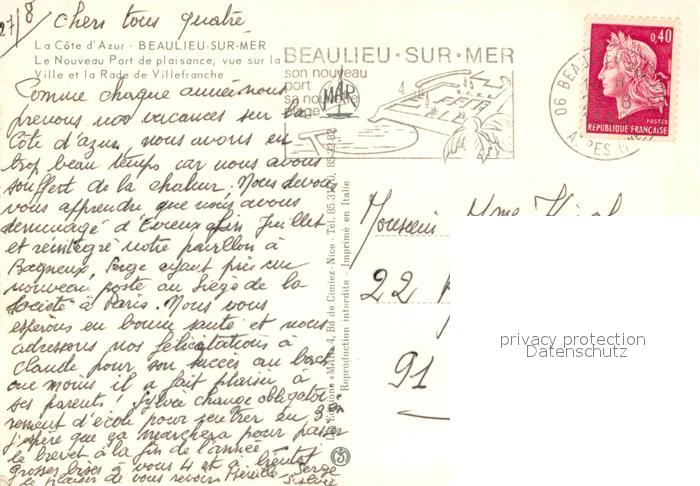 27/8
Chers tous quatre
La Côte d'Azur - BEAULIEU-SUR-MER
Le Nouveau Port de plaisance, vue sur la
Ville et la Rade de Villefranche
Comme chaque année nous
prenons nos vacances sur la
Côte d'azur, nous avons eu
trop beau temps car nous avons
souffert de la chaleur. Nous devons
vous apprendre que nous avons
déménagé d'Evreux fin Juillet
et réintégré notre pavillon à
Bagneux, Serge ayant pris un
nouveau poste au Siège de la
Société à Paris. Nous vous
espérons en bonne santé et nous
adressons nos félicitations à
Claude pour son succès au bac
au moins il a fait plaisir à
ses parents ! Sylvie change obligatoi
rement d'école pour rentrer en 3ème
j'espère que ça marchera pour passer
le brevet à la fin de l'année.
grosses bises à vous 4 et à bientôt
le plaisir de vous revoir Mireille Serge
Sylvie
BEAULIEU·SUR·MER
son nouveau
port
sa nouvelle
plage
MAR
0,40
POSTES
REPUBLIQUE FRANÇAISE
06 BEAULIEU
ALPES
Editions «MAR» 4, Bd de Cimiez - Nice - Tél. 85.31
Reproduction interdite - Imprimé en Italie
Monsieur Mme
22
91
privacy protection
Datenschutz